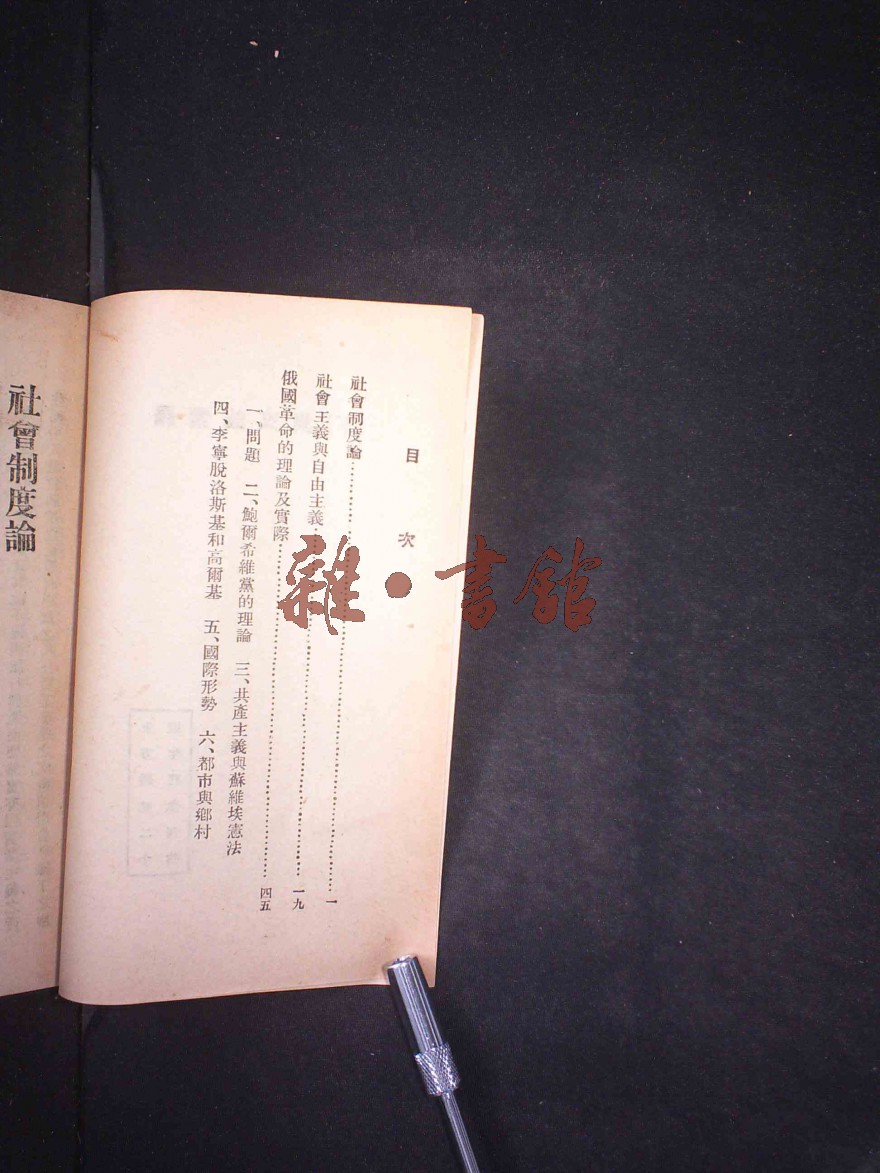 目次
社會制度論……一
社會主義與自由主義……一九
俄國革命的理論及實際……四五
一、問題　二、鮑爾希維黨的理論　三、共產主義與蘇維埃憲法
四、李寧脫洛斯基和高爾基　五、國際形勢　六、都市與鄉村
社會制度論
雜·書館